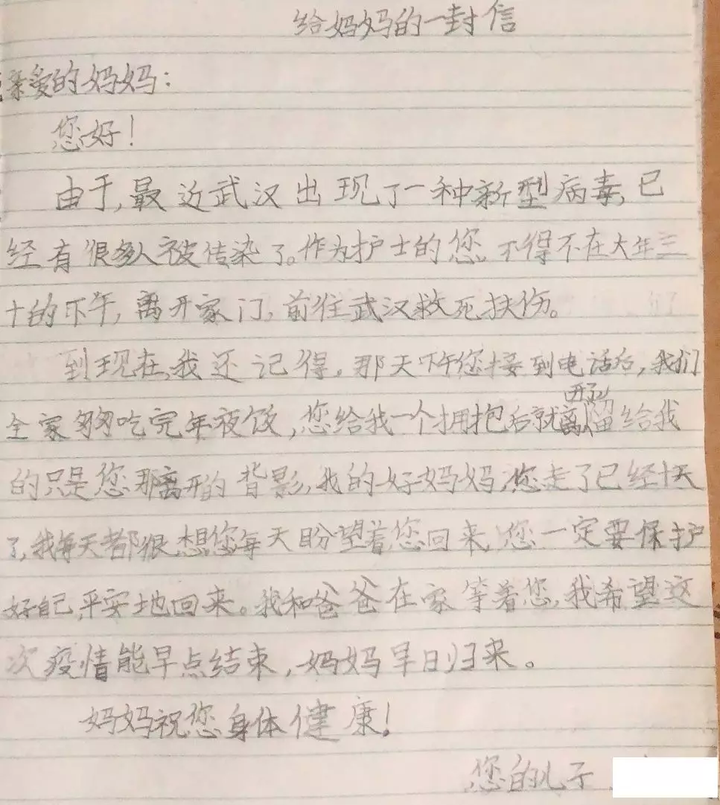 给妈妈的一封信
亲爱的妈妈：
您好！
由于,最近武汉出现了一种新型病毒,已
经有很多人被传染了。作为护士的您,不得不在大年三
十的下午,离开家门,前往武汉救死扶伤。
到现在,我还记得。那天下午您接到电话后,我们
全家匆匆吃完年夜饭,您给我一个拥抱后就离开了,留给我
的只是您那离开的背影,我的好妈妈,您走了已经十天
了,我每天都很想您每天盼望着您回来,您一定要保护
好自己,平安地回来。我和爸爸在家等着您,我希望这
次疫情能早点结束,妈妈早日归来。
妈妈祝您身体健康！
您的儿子